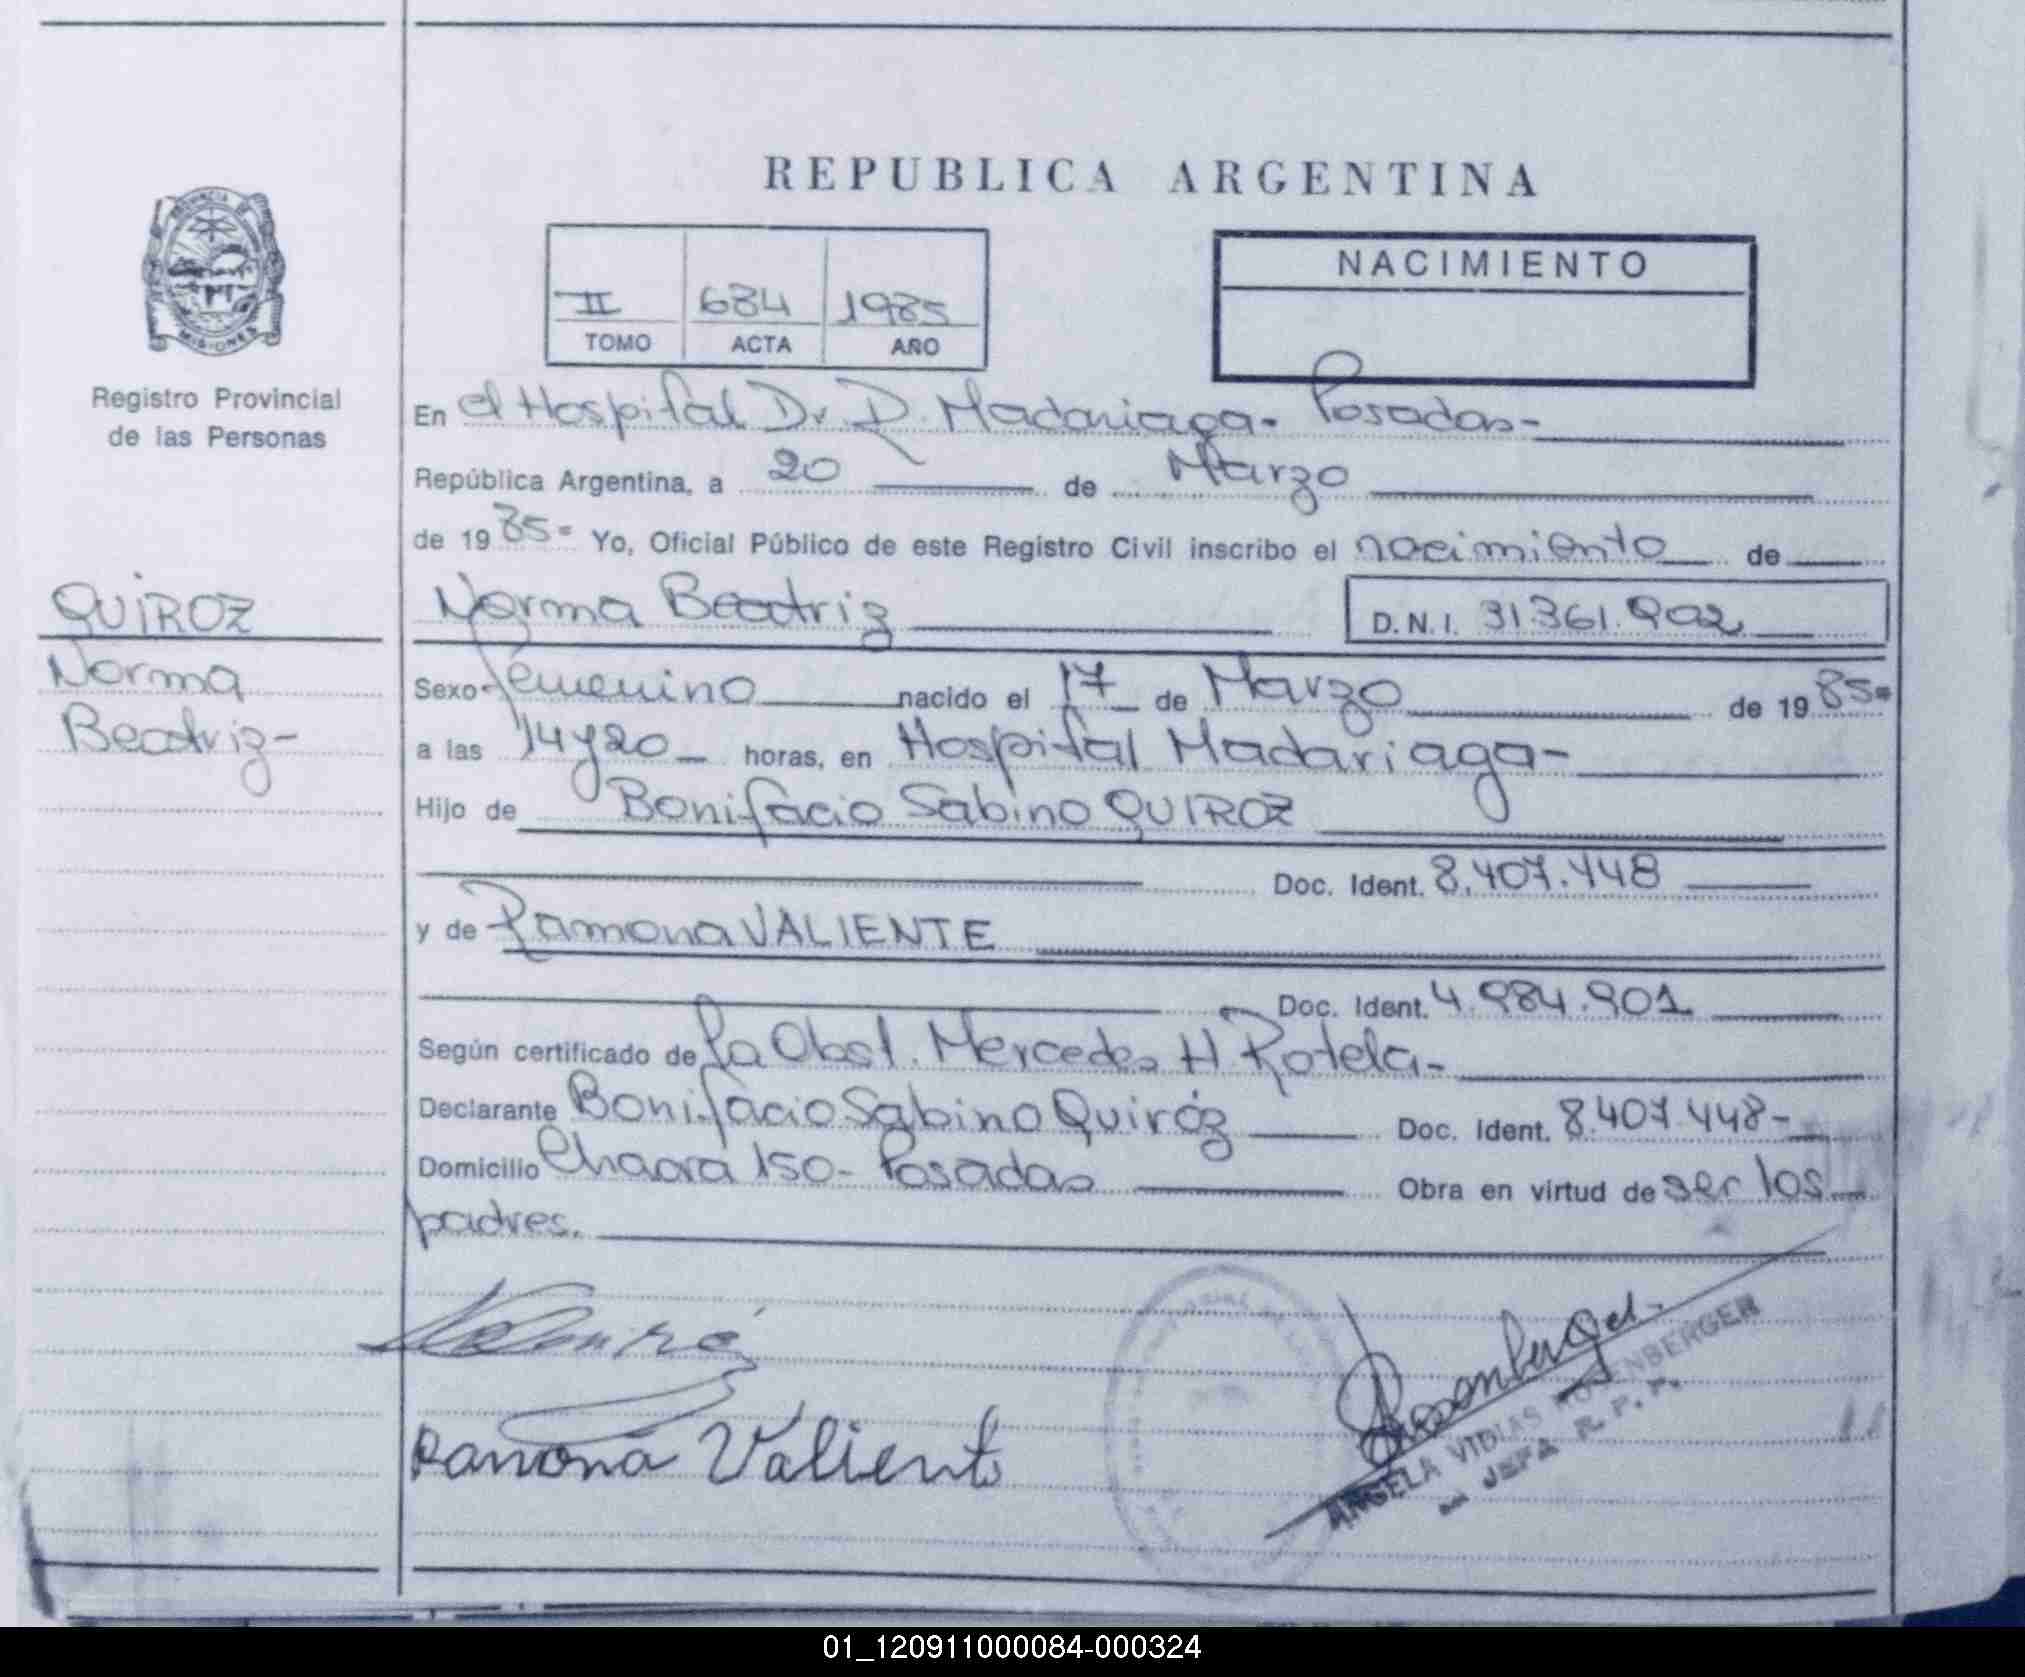 REPUBLICA ARGENTINA
PROVINCIA DE
MISIONES
Registro Provincial
de las Personas
II 684 1985
TOMO ACTA AÑO
NACIMIENTO
En el Hospital Dr. R. Madariaga- Posadas-
República Argentina, a 20 de Marzo
de 19 85= Yo, Oficial Público de este Registro Civil inscribo el nacimiento de
QUIROZ
Norma
Beatriz-
Norma Beatriz D.N.I. 31.361.902
Sexo femenino nacido el 17 de Marzo de 19 85=
a las 14 y 20 horas, en Hospital Madariaga-
Hijo de Bonifacio Sabino QUIROZ
Doc. Ident. 8.407.448
y de Ramona VALIENTE
Doc. Ident. 4.984.901
Según certificado de la Obst. Mercedes H. Rotela-
Declarante Bonifacio Sabino Quiróz Doc. Ident. 8.407.448-
Domicilio Chacra 150- Posadas Obra en virtud de ser los
padres.
Ramona Valiente
Rosenberger
ANGELA VIDIAS ROSENBERGER
JEFA R. P. P.
01_120911000084-000324